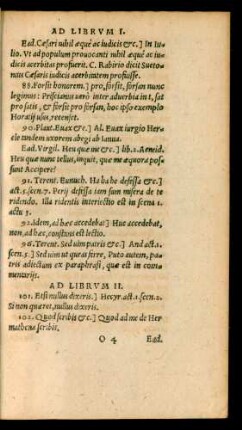 AD LIBRVM I.
Ead. Cæsari nihil æquè ac iudicis &c.] In Iu-
lio. Vt ad populum prouocanti nihil æquè ac iu-
dicis acerbitas profuerit. C. Rabirio dicit Sueto-
nius Cæsaris iudicis acerbitatem profuisse.
88. Forsit honorem.] pro, forsit, forsan nunc
legimus: Priscianus verò inter aduerbia in t, sat
pro satis, & forsit pro forsan, hoc ipso exemplo
Horatij usus, recenset.
90. Plaut. Euax &c.] Al. Euax iurgio Her-
cle tandem uxorem abegi ab ianua.
Ead. Virgil. Heu quæ me &c.] lib. 2. Aeneid.
Heu quæ nunc tellus, inquit, quæ me æquora pos-
sunt Accipere!
91. Terent. Eunuch. Ha ha he defessa &c.]
act. 5. scen. 7. Perij defessa iam sum misera de te
ridendo. Illa ridentis interiectio est in scena 1.
actu 3.
92. Idem, ad hæc accedebat] Huc accedebat,
non, ad hæc, constans est lectio.
96. Terent. Sed uim patris &c.] And. act. 1.
scen. 5. Sed uim ut queas ferre, Puto autem, pa-
tris adiectam ex paraphrasi, quæ est in com-
mentarijs.
AD LIBRVM II.
101. Etsi nullus dixeris.] Hecyr. act. 1. scen. 2.
Si non quæret, nullus dixeris.
102. Quod scribis &c.] Quod ad me de Her-
mathena scribis.
O 4 Ead.